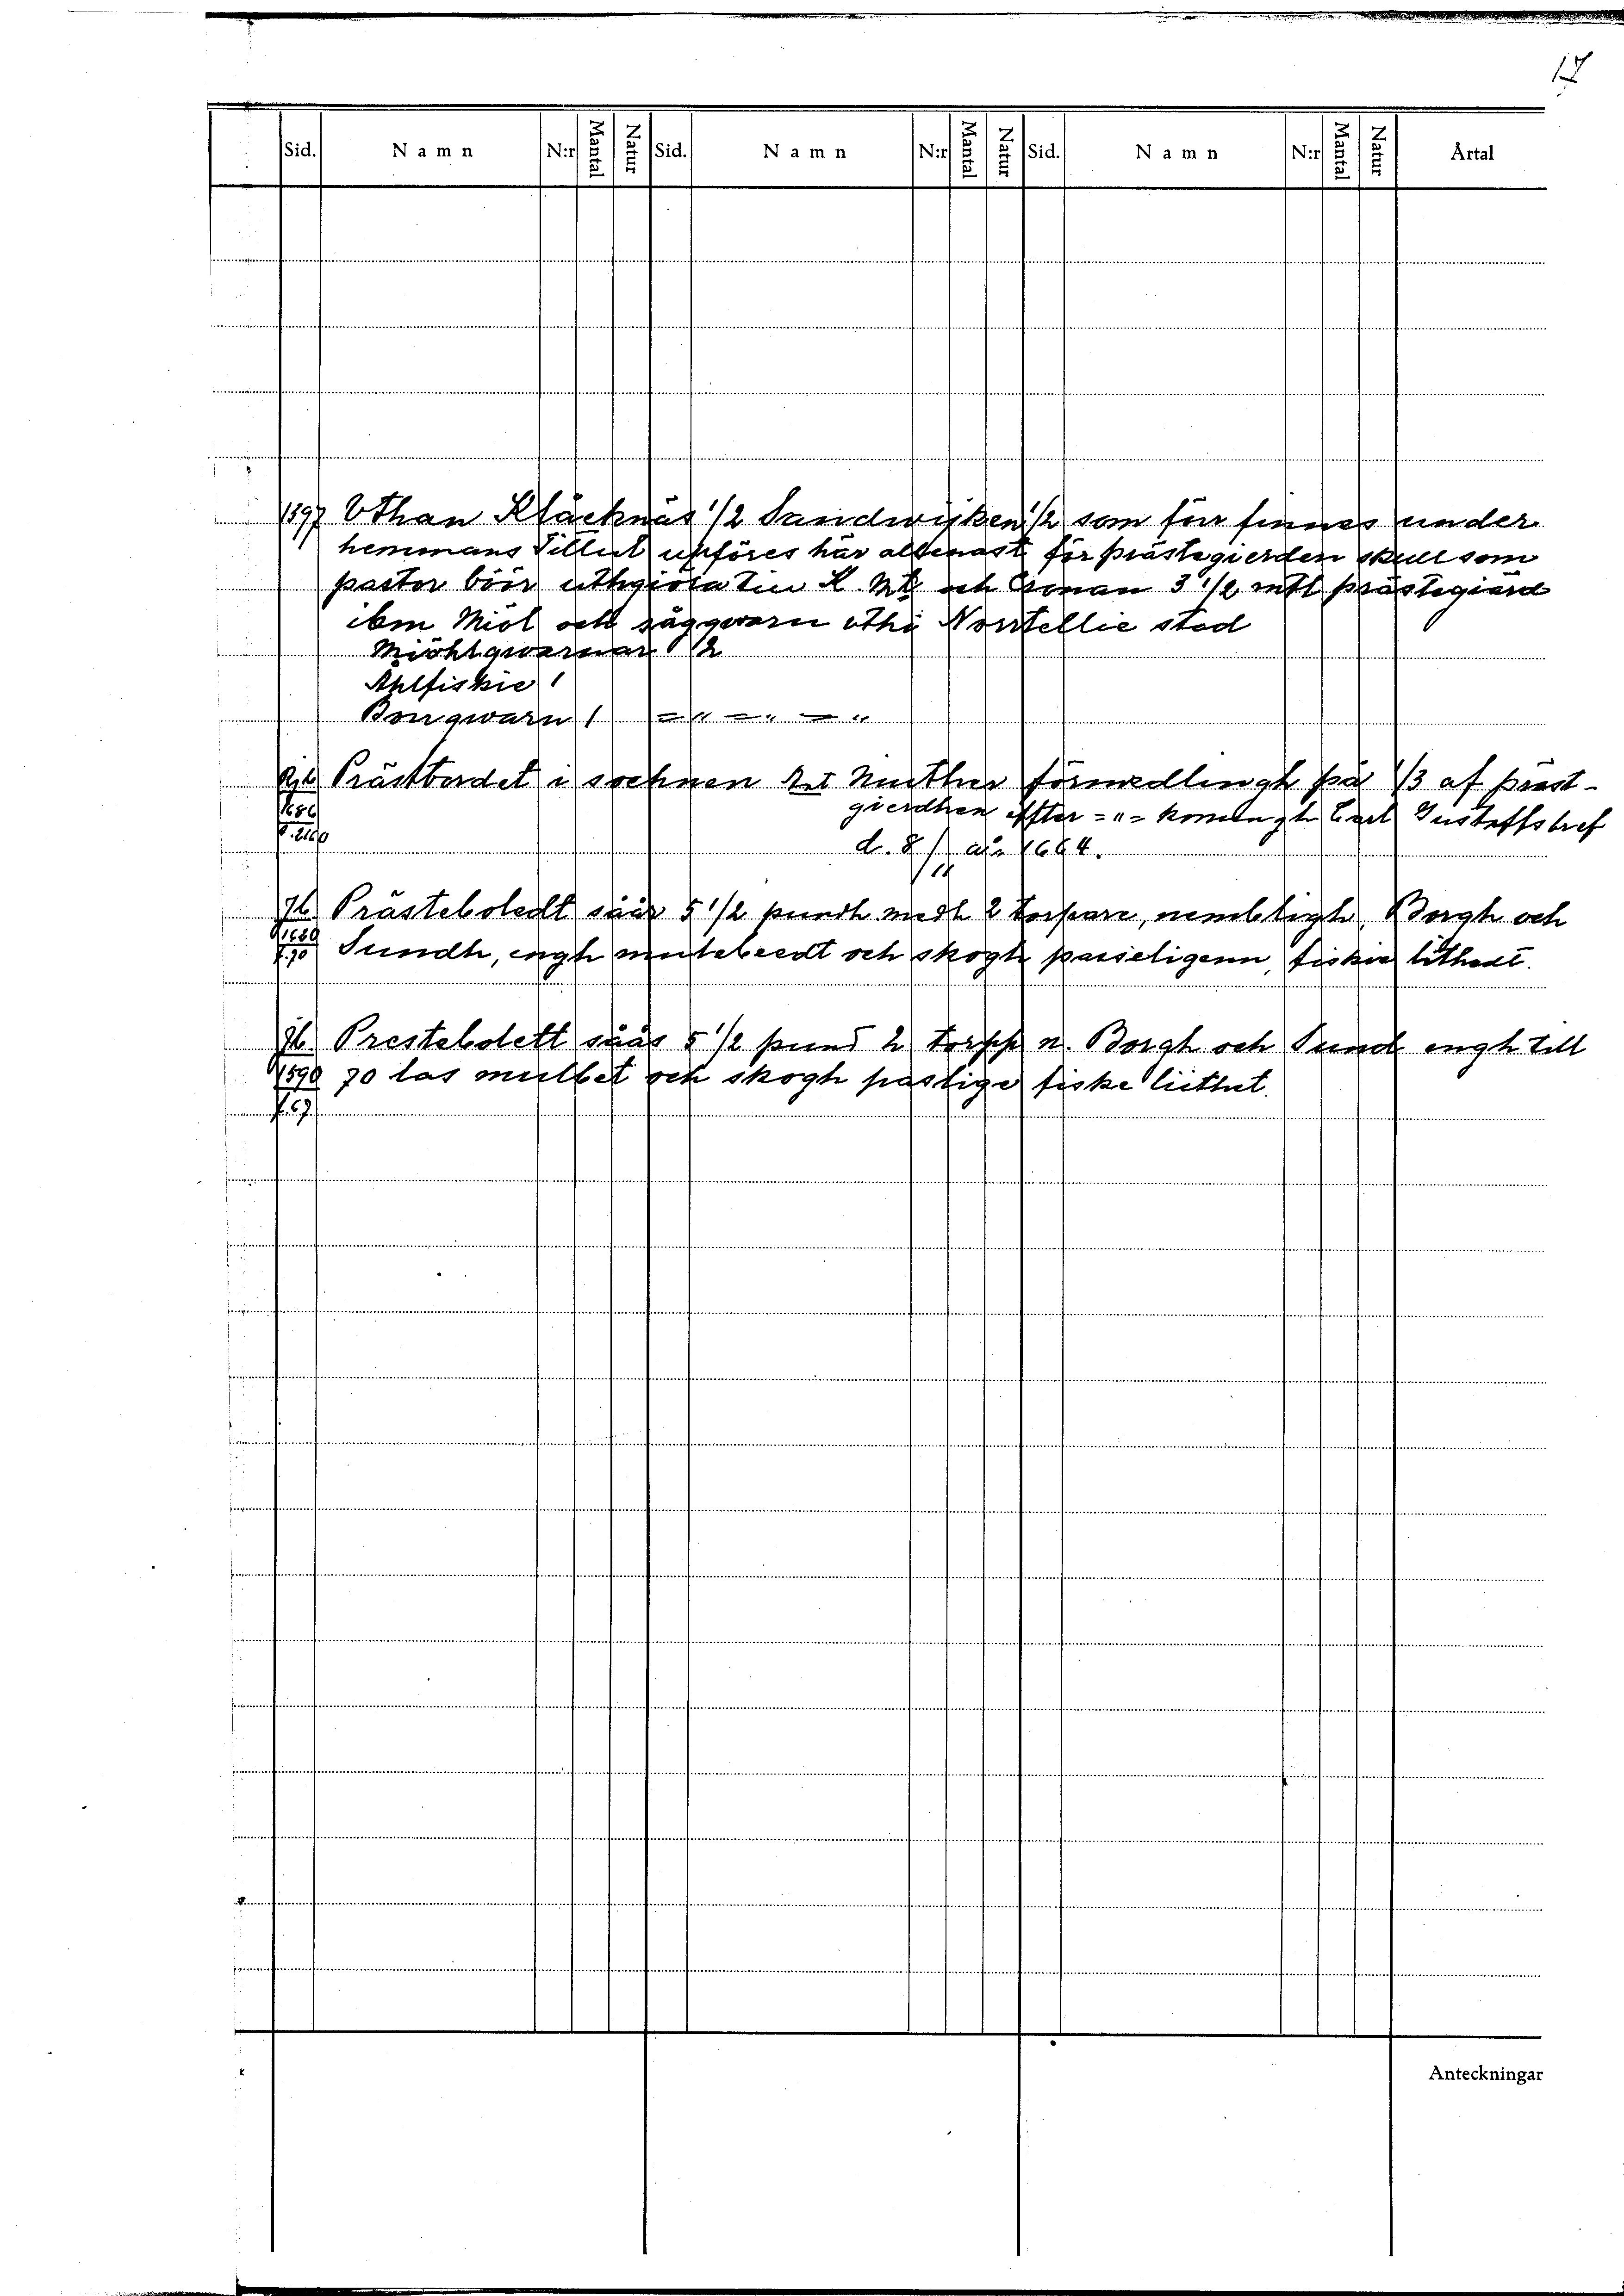 17
Sid. Namn N:r Mantal Natur Sid. Namn N:r Mantal Natur Sid. Namn N:r Mantal Natur Årtal
1697 Uthan Kläcknäs 1/2 Sandwijken 1/2 som för finnes under
hemmans Tillut upföres här allenast för prästegierden skull som
pastor böör uthgiöra till K. Mt och Cronan 3 1/2 mtl prästegiärd
ibm Miöl och såggwarn uthi Norrtellie stad
Miöhlqwarnar 2
Ahlfiskie 1
Bruqwarn 1 = " = " = "
Prästbordet i sochnen förmedlingh på 1/3 af präst-
gierdhen effter = " = konungh Carl Gustaffs bref
d. 8/11 1664.
Jb. Prästeboledt såår 5 1/2 pundh medh 2 torpare, nembligh Borgh och
f. 70 Sundh, engh mulebeedt och skogh passeligenn, fiskie lithedt.
Jb. Prestebolett såås 5 1/2 pund 2 torpp n. Borgh och Sund engh till
1590 70 las mulbet och skogh paslige fiske liithet.
f. 67
Anteckningar